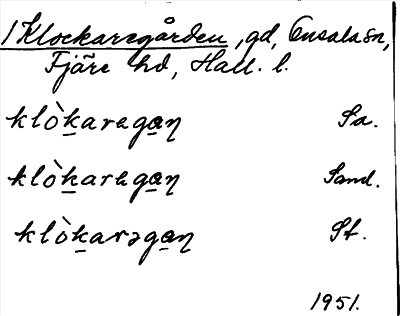 1 Klockaregården, gd, Onsala sn,
Fjäre hd, Hall. l.
klòkaragaŋ Sa.
klòkaragaŋ Sand.
klòkarəgaŋ St.
1951.